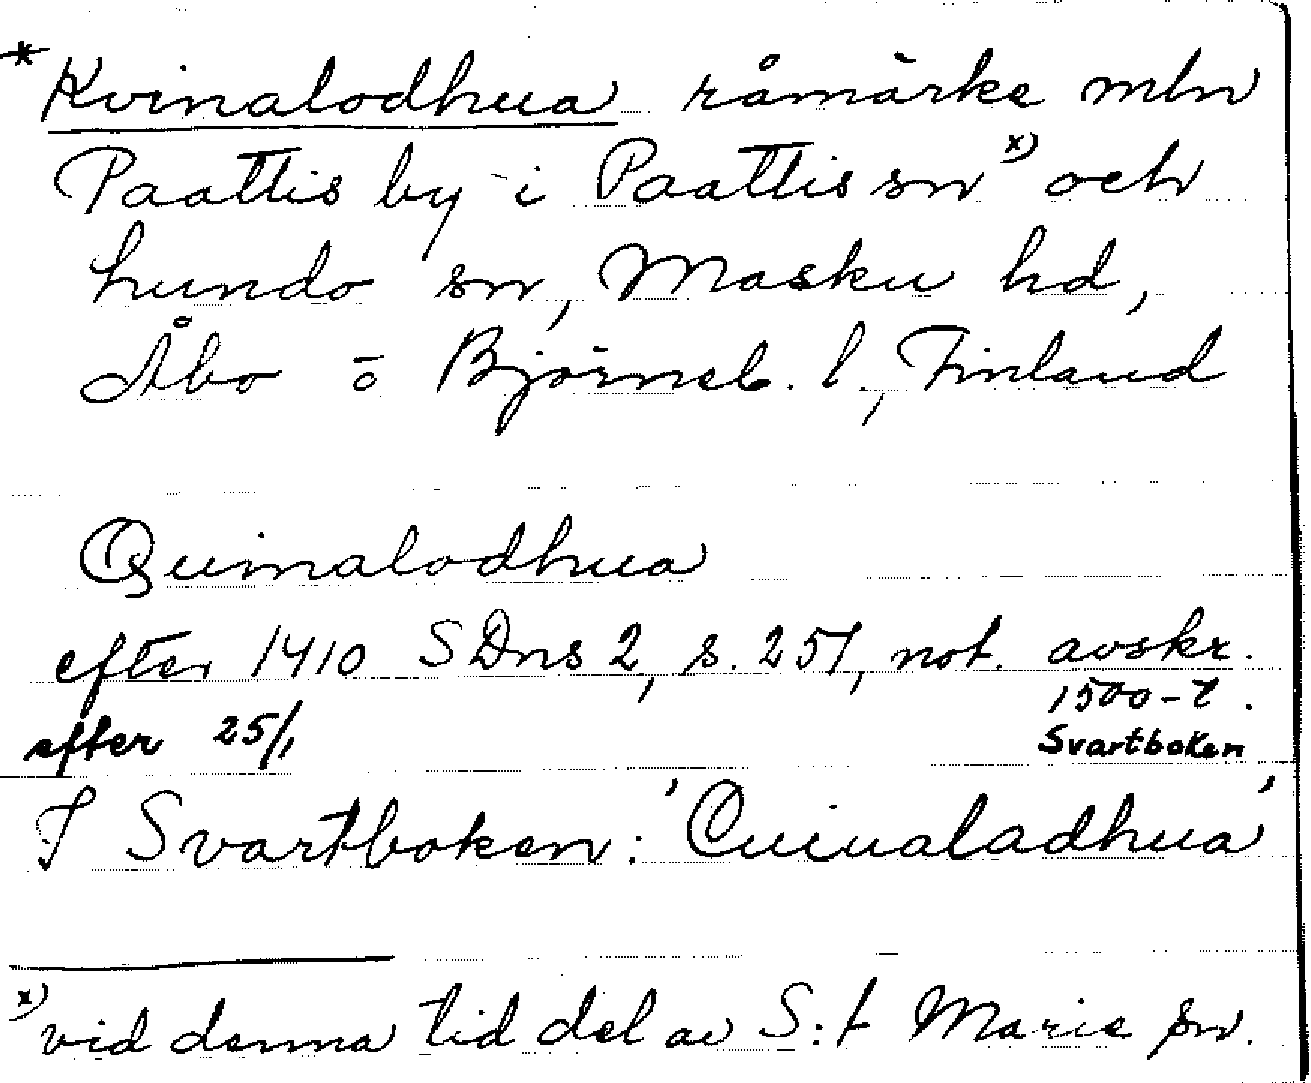 * Kvinalodhua råmärke mln
Paattis by i Paattis sn x) och
Lundo sn, Masku hd,
Åbo o Björneb. l., Finland
Quinalodhua
efter 1410 SDns 2, s. 251, not. avskr.
1500-t.
efter 25/1 Svartboken
I Svartboken: 'Cuiualadhua'
x) vid denna tid del av S:t Marie sn.